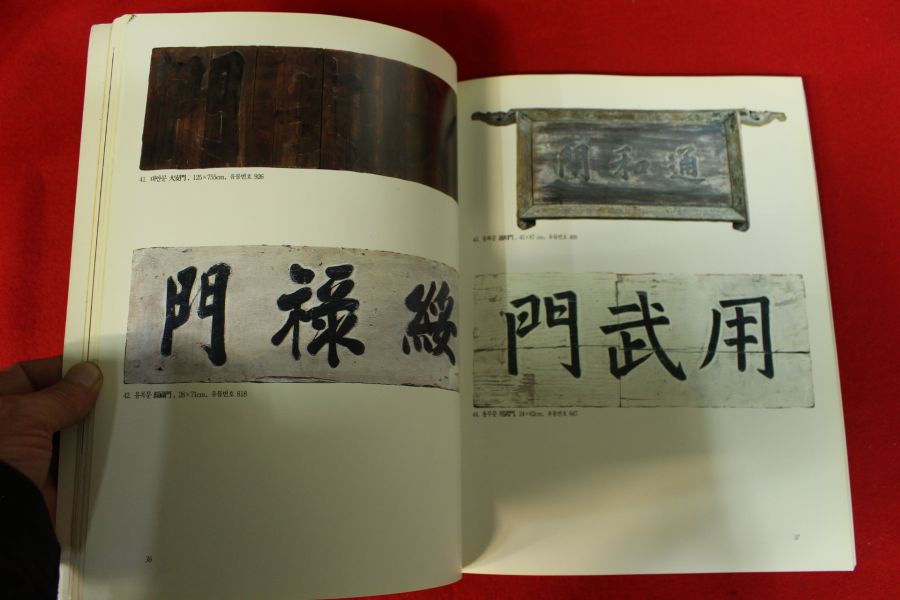 門
41. 대안문 大安門, 125×755cm, 유물번호 926
綏祿門
42. 門, 28×71cm, 유물번호 818
36
通和門
43. 통화문 通和門, cm, 유물번호
用武門
44. 용무문 用武門, cm, 유물번호
37